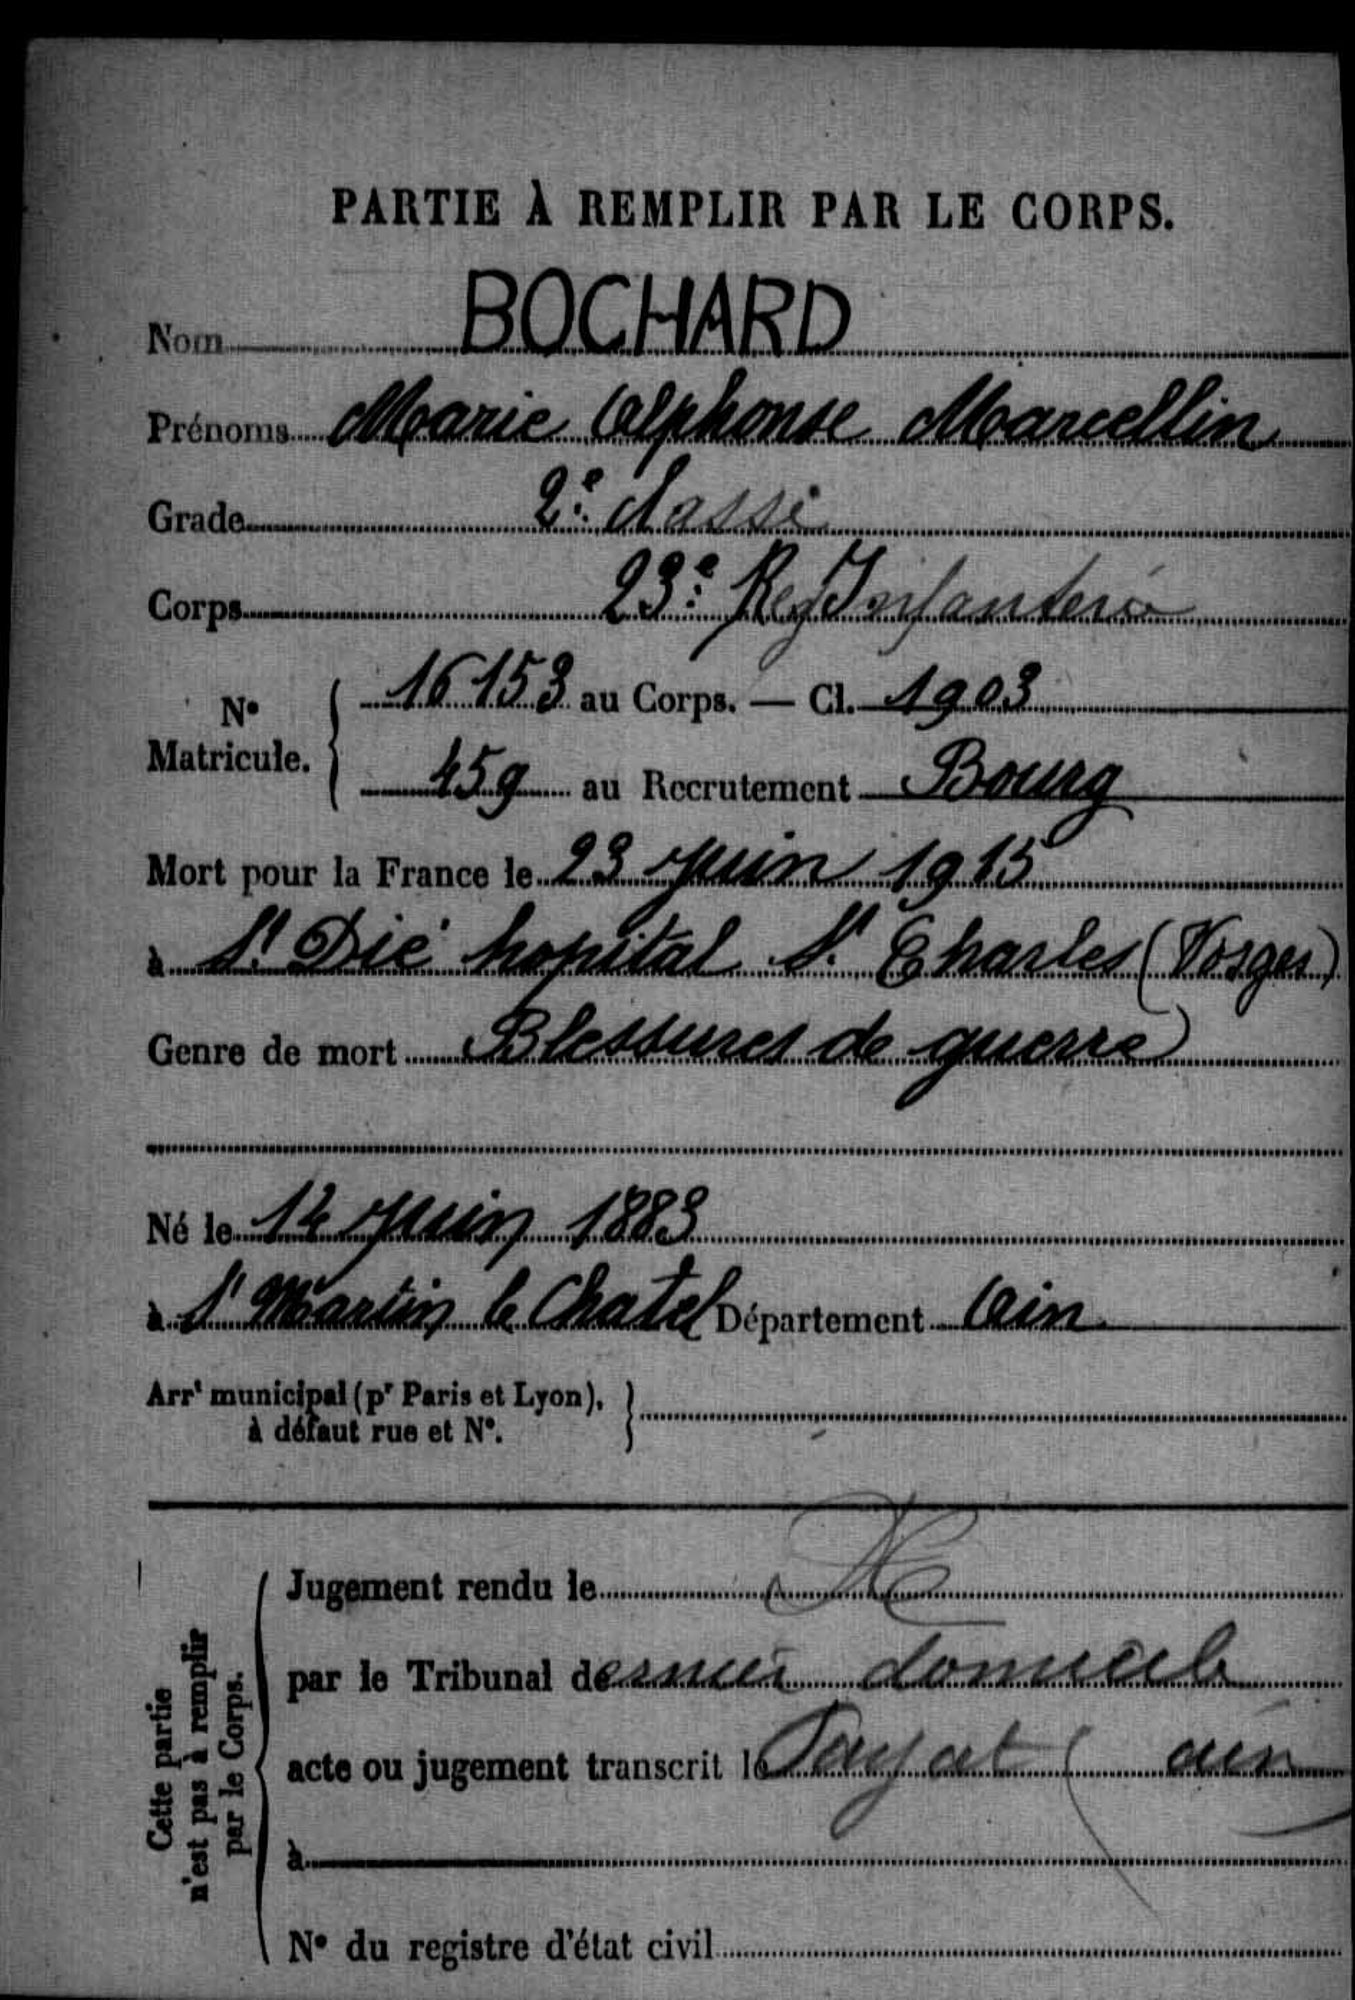 PARTIE À REMPLIR PAR LE CORPS.
Nom BOCHARD
Prénoms Marie Alphonse Marcellin
Grade 2e classe
Corps 23e Reg Infanterie
No Matricule. 16153 au Corps. — Cl. 1903
459 au Recrutement Bourg
Mort pour la France le 23 Juin 1915
à St Dié hopital St Charles (Vosges)
Genre de mort Blessures de guerre
Né le 14 Juin 1883
à St Martin le Chatel Département Ain
Arrt municipal (pr Paris et Lyon),
à défaut rue et No.
Cette partie
n'est pas à remplir
par le Corps.
Jugement rendu le
par le Tribunal dernier domicile
acte ou jugement transcrit le Jayat (ain
à
No du registre d'état civil